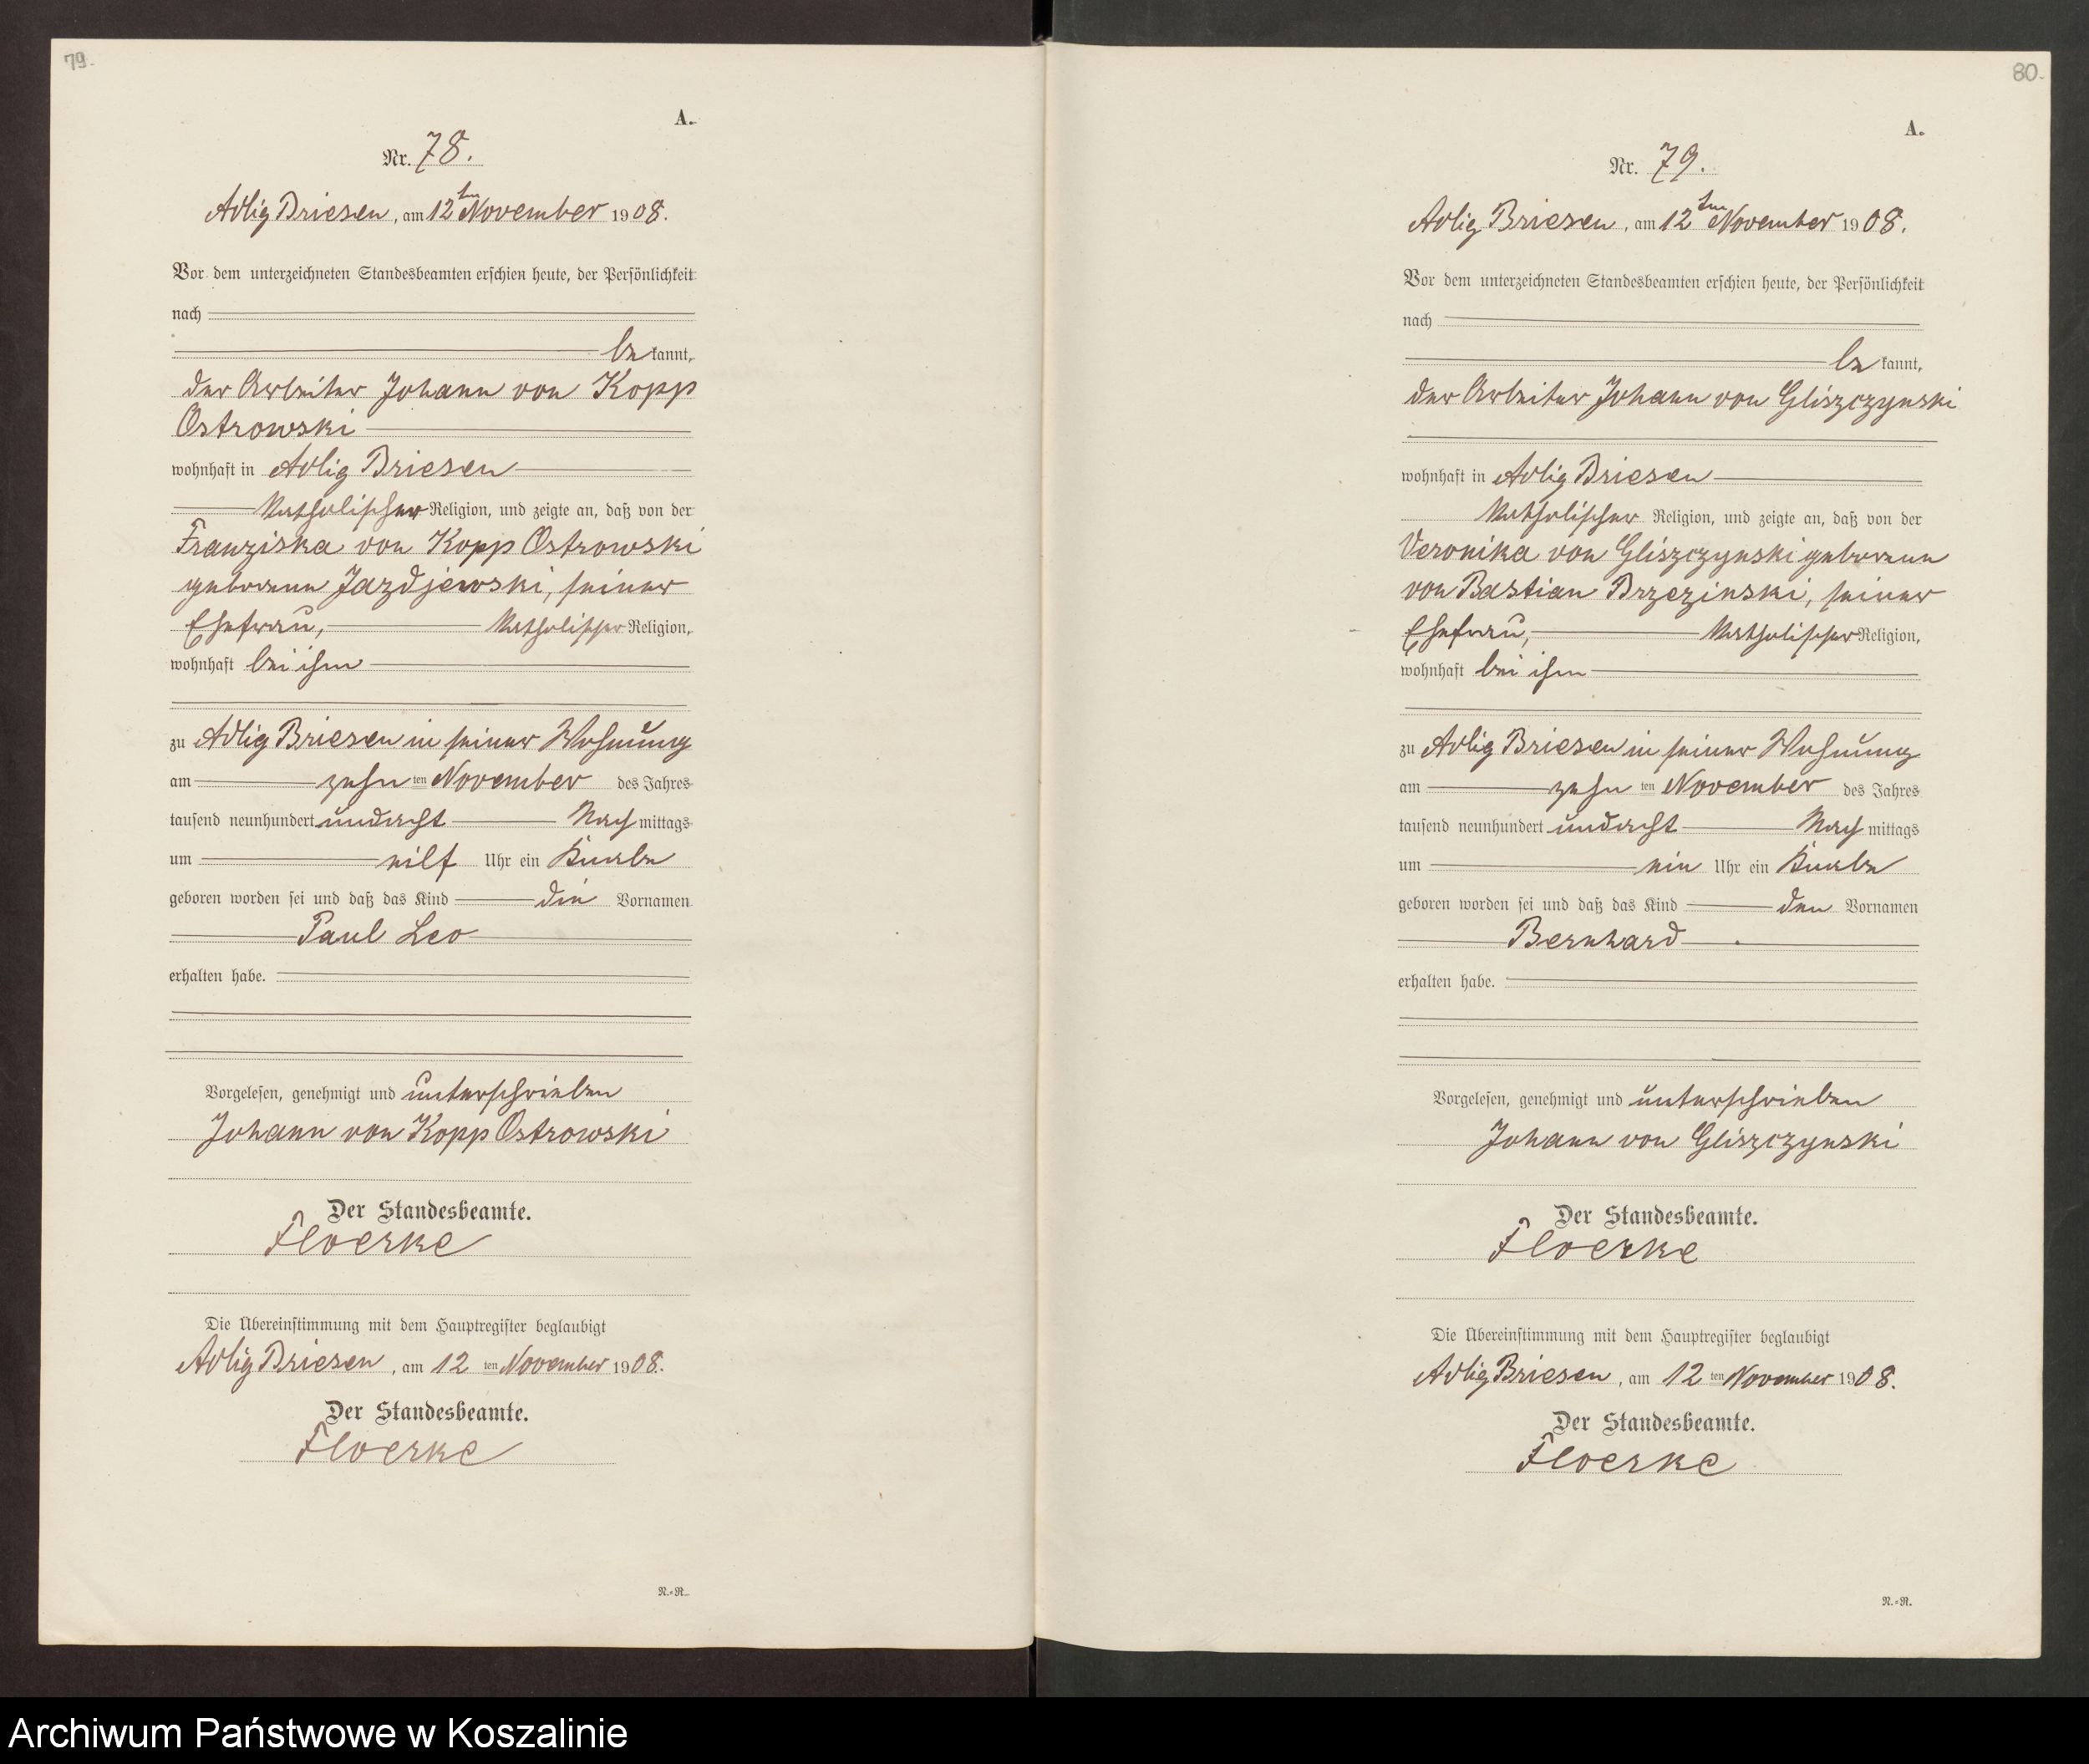 79.
A.
Nr. 78.
Adlig Briesen, am 12ten November 1908.
Vor dem unterzeichneten Standesbeamten erschien heute, der Persönlichkeit
nach
be kannt,
der Arbeiter Johann von Kopp
Ostrowski
wohnhaft in Adlig Briesen
katholischer Religion, und zeigte an, daß von der
Franziska von Kopp Ostrowski
geborene Jazdjewski, seiner
Ehefrau, katholischer Religion,
wohnhaft bei ihm
zu Adlig Briesen in seiner Wohnung
am zehn ten November des Jahres
tausend neunhundert undacht Nach mittags
um eilf Uhr ein Knabe
geboren worden sei und daß das Kind die Vornamen
Paul Leo
erhalten habe.
Vorgelesen, genehmigt und unterschrieben
Johann von Kopp Ostrowski
Der Standesbeamte.
Floerke
Die Übereinstimmung mit dem Hauptregister beglaubigt
Adlig Briesen, am 12 ten November 1908.
Der Standesbeamte.
Floerke
N.=R.
80.
A.
Nr. 79.
Adlig Briesen, am 12ten November 1908.
Vor dem unterzeichneten Standesbeamten erschien heute, der Persönlichkeit
nach
be kannt,
der Arbeiter Johann von Gliszczynski
wohnhaft in Adlig Briesen
katholischer Religion, und zeigte an, daß von der
Veronika von Gliszczynski geborene
von Bastian Brzezinski, seiner
Ehefrau, katholischer Religion,
wohnhaft bei ihm
zu Adlig Briesen in seiner Wohnung
am zehn ten November des Jahres
tausend neunhundert undacht Nach mittags
um ein Uhr ein Knabe
geboren worden sei und daß das Kind den Vornamen
Bernhard
erhalten habe.
Vorgelesen, genehmigt und unterschrieben
Johann von Gliszczynski
Der Standesbeamte.
Floerke
Die Übereinstimmung mit dem Hauptregister beglaubigt
Adlig Briesen, am 12 ten November 1908.
Der Standesbeamte.
Floerke
N.=R.
Archiwum Państwowe w Koszalinie